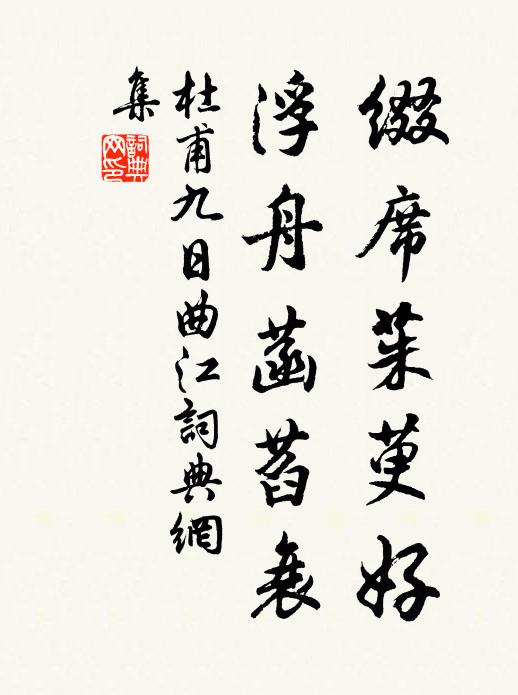 綴席茱萸好
浮舟菡萏衰
杜甫九日曲江詞典網
集
詞典
网印